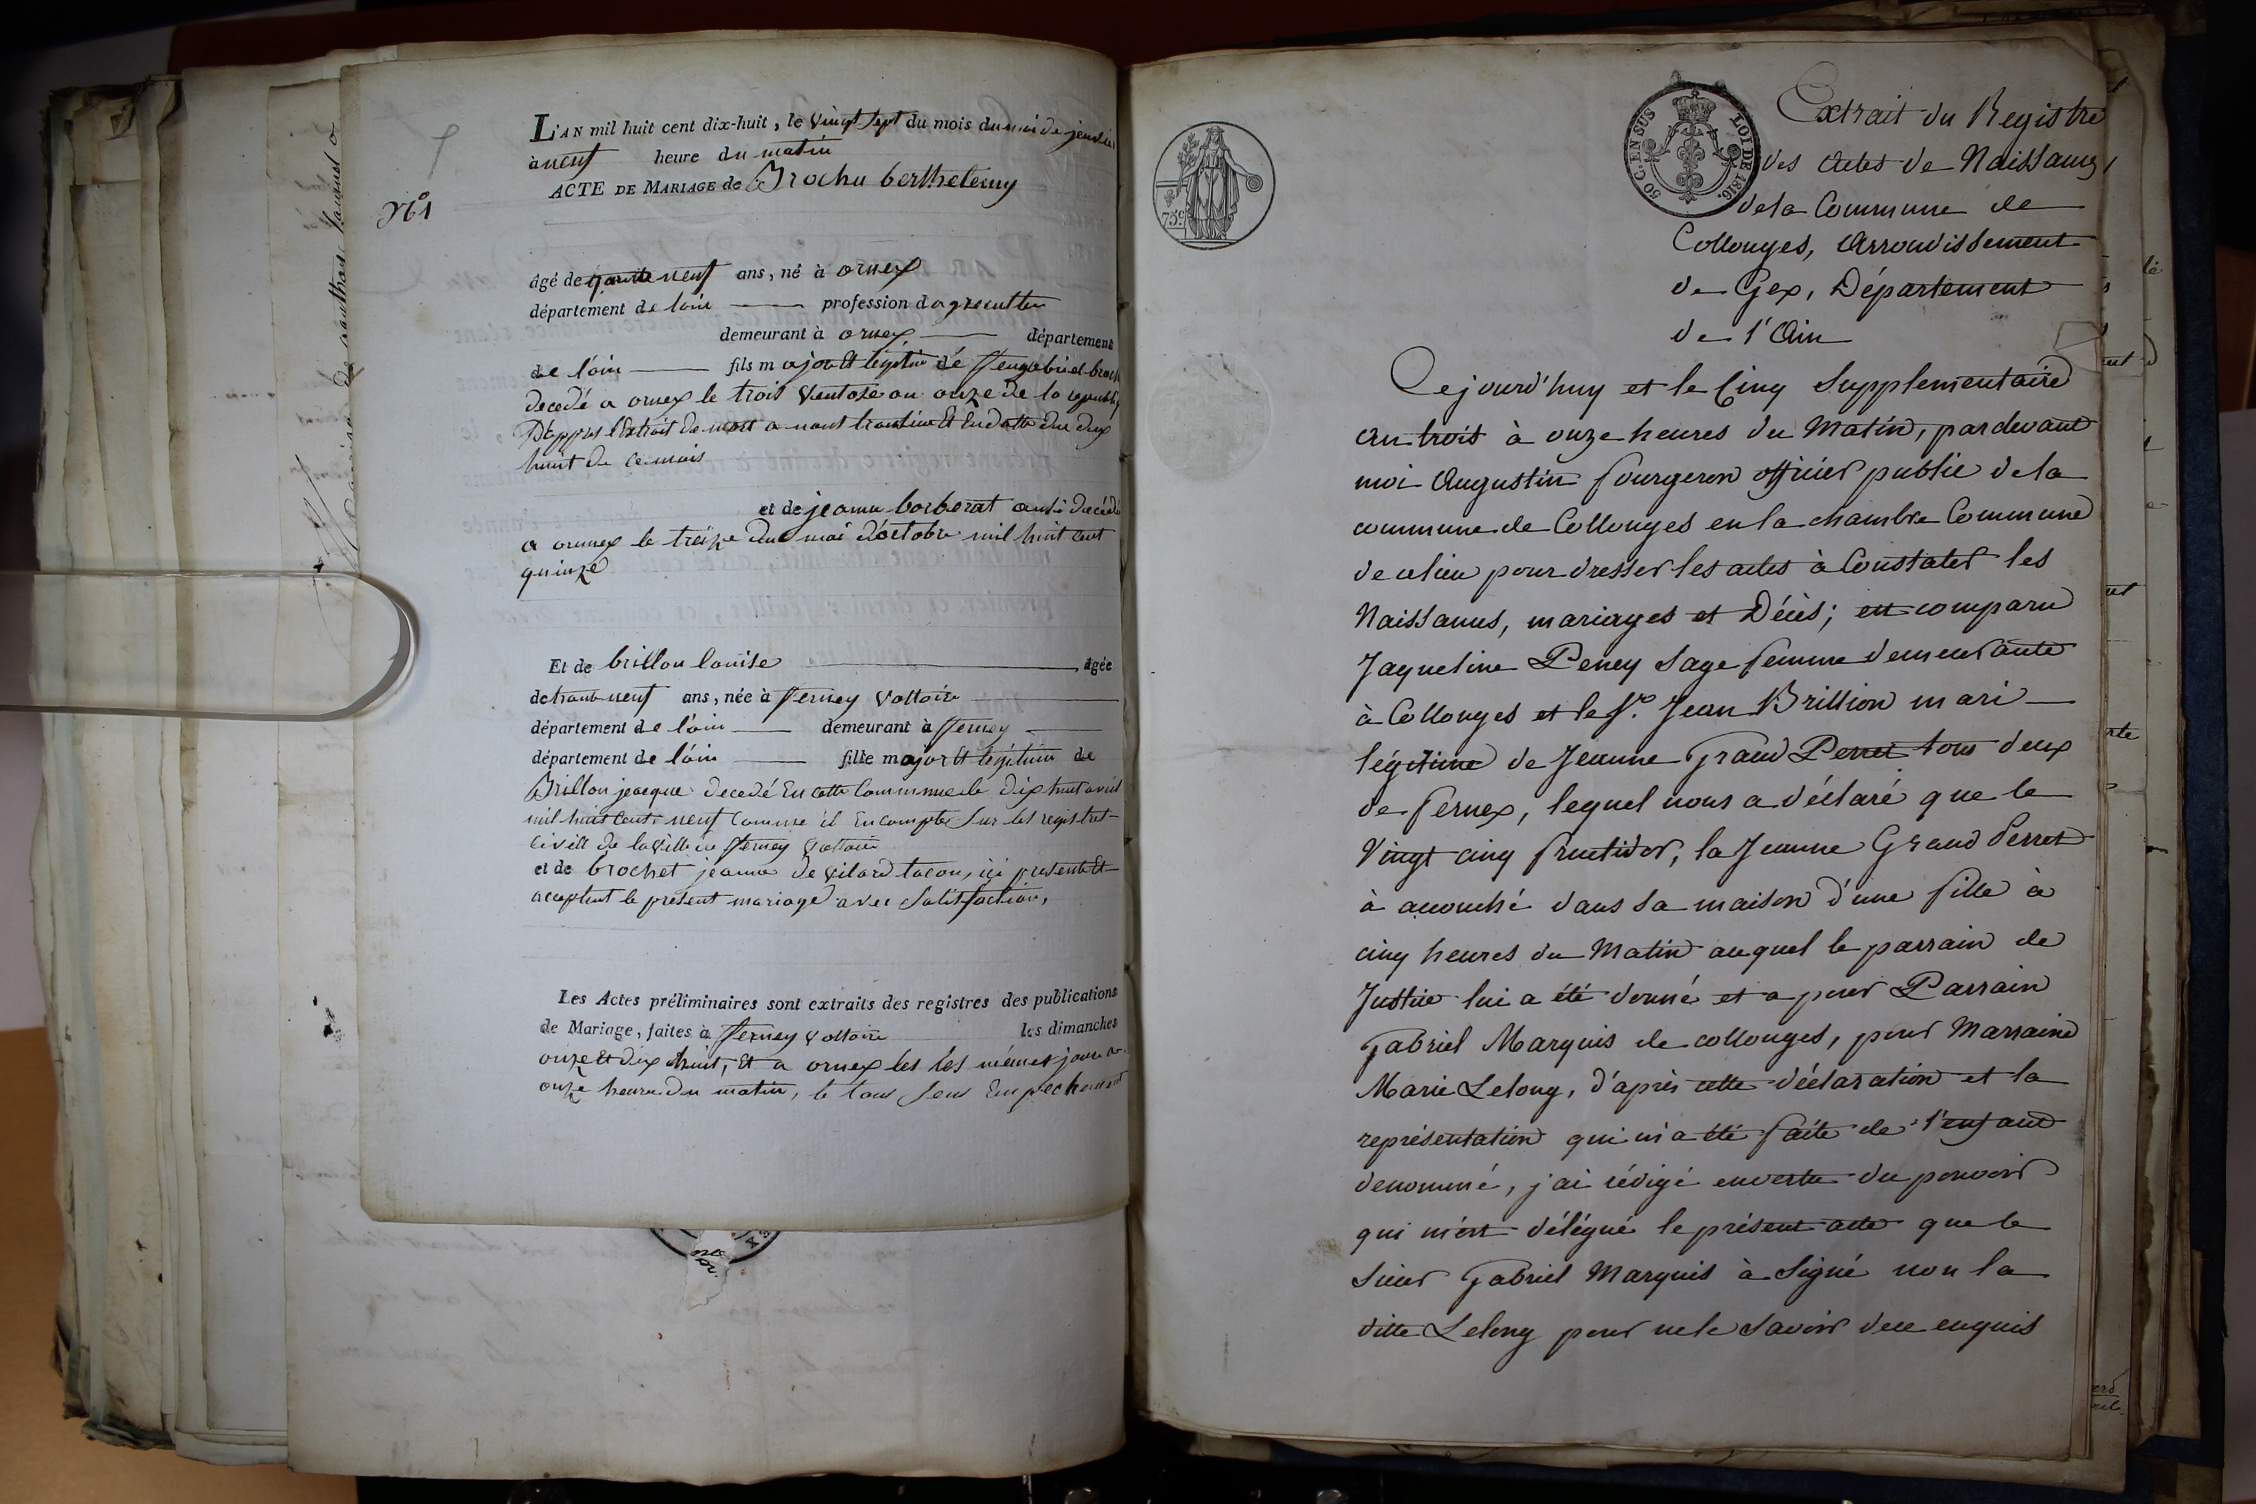 L'AN mil huit cent dix-huit, le vingt sept du mois du moi de jenvier
à neuf heure du matin
ACTE DE MARIAGE de Brochu berthelemy
N° 1
âgé de trante neuf ans, né à ornex
département de l'ain profession d agreculteur
demeurant à ornex département
de l'ain fils m ajor et légitime de
decedé a ornex le trois ventose an onze de la
D'appres l'Extrait de mort a nous Et En datte du dix
huit de ce mois
et de jeanne borborat ausi decedé
a ornnex le treize du moi d'octobre mil huit cent
quinze
Et de brillon louise, âgée
de trante neuf ans, née à fferney voltaire
département de l'ain demeurant à fferney
département de l'ain fille m ajor et légitime de
Brillon jeacque decedé En cette Commune le dix huit avril
mil huit cent neuf comme il En compte sur les registres
civill de la ville de fferney voltaire
et de brochet jeanne de vilard tacon, içi presente Et
acceptent le présent mariage avec Satisfaction,
Les Actes préliminaires sont extraits des registres des publications
de Mariage, faites à fferney voltaire les dimanches
onze Et dix huit, Et a ornex les les mémes jours
onze heure du matin, le tous sens Empechement
759
50 C. EN SUS LOI DE 1816.
Extrait du Registre
des Actes de Naissances
de la Commune de
Collonges, Arrondissement
de Gex, Département
de l'Ain
Cejourd'huy et le Cinq Supplementaire
an trois à onze heures du Matin, pardevant
moi Augustin fourgeron officier public de la
commune de Collonges en la chambre Commune
de ce lieu pour dresser les actes à Constater les
Naissances, mariages et Décès; est comparu
Jaqueline Peney Sage femme demeurante
à Collonges et le Sr. Jean Brillion mari
légitime de Jeanne Grand Perret tous deux
de fernex, lequel nous a déclaré que le
Vingt cinq fructidor, la Jeanne Grand Perret
à accouché dans sa maison d'une fille à
cinq heures du Matin auquel le parrain de
Justine lui a été donné et a pour Parrain
Gabriel Marquis de collonges, pour Marraine
Marie Lelong, d'après cette déclaration et la
représentation qui m'a été faite de l'enfant
denommé, j'ai rédigé en vertu du pouvoir
qui m'est délégué le présent acte que le
Sieur Gabriel Marquis à Signé non la
ditte Lelong pour ne le Savoir de ce enquis